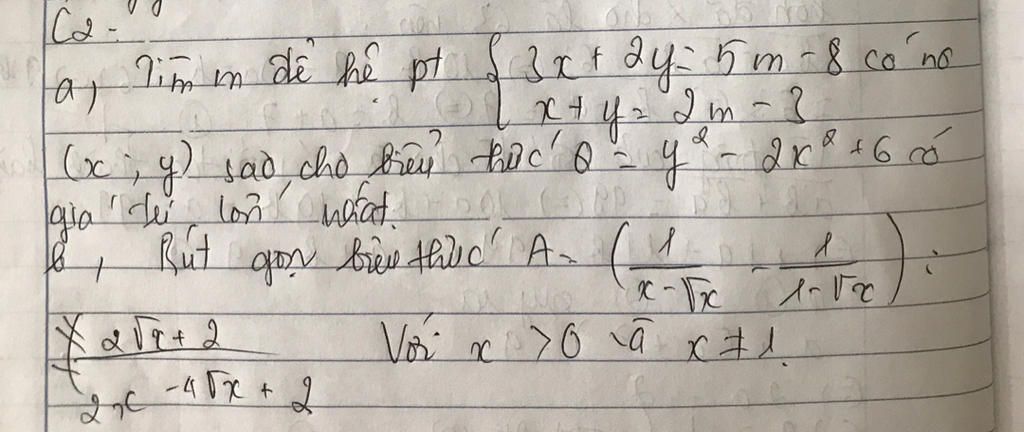 C2 -
a, Tìm m để hệ pt { 3x + 2y = 5m - 8 có no
x + y = 2m - 3
(x ; y) sao cho biểu thức Q = y² - 2x² + 6 có
giá trị lớn nhất.
b, Rút gọn biểu thức A = ( 1/(x - √x) - 1/(1 - √x) ) :
(2√x + 2)/(2x - 4√x + 2) Với x > 0 và x ≠ 1.